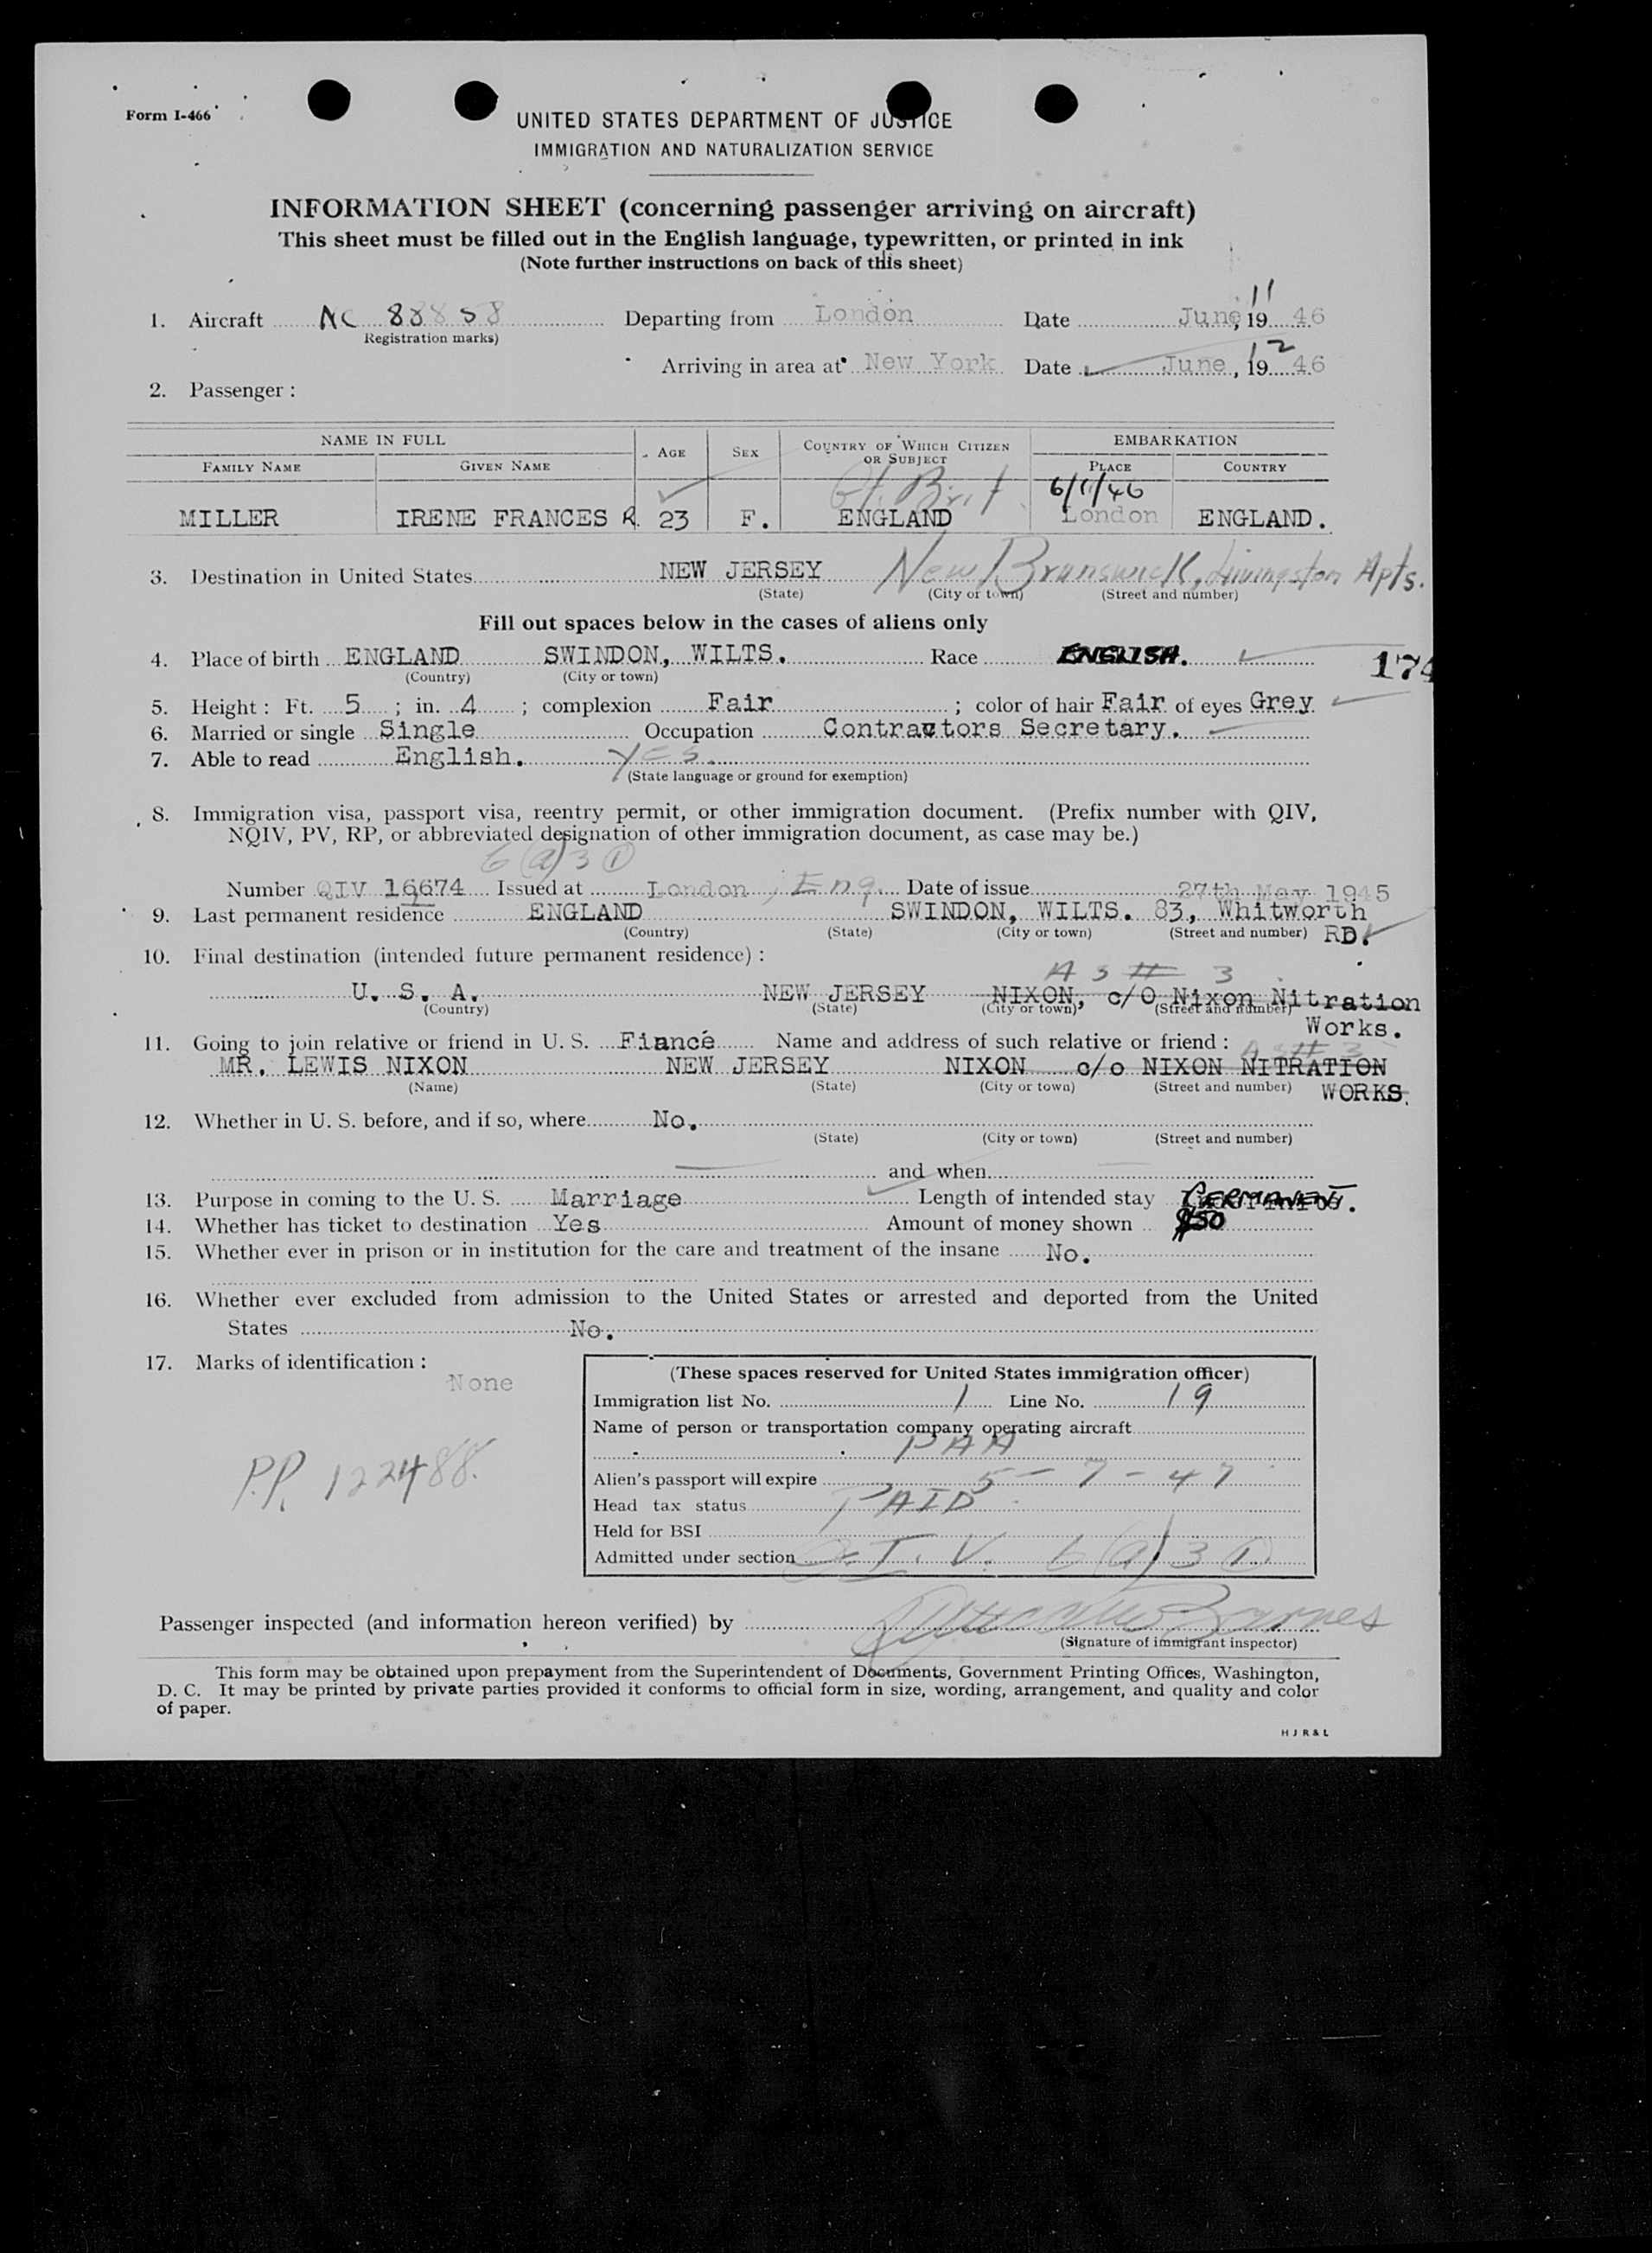 Form I-466
UNITED STATES DEPARTMENT OF JUSTICE
IMMIGRATION AND NATURALIZATION SERVICE
INFORMATION SHEET (concerning passenger arriving on aircraft)
This sheet must be filled out in the English language, typewritten, or printed in ink
(Note further instructions on back of this sheet)
1. Aircraft NC 88858 Departing from London Date June 11, 1946
(Registration marks)
Arriving in area at New York Date June 12, 1946
2. Passenger :
NAME IN FULL AGE SEX COUNTRY OF WHICH CITIZEN OR SUBJECT EMBARKATION
FAMILY NAME GIVEN NAME PLACE COUNTRY
Gt. Brit. 6/11/46
MILLER IRENE FRANCES R. 23 F. ENGLAND London ENGLAND.
3. Destination in United States NEW JERSEY New Brunswick, Livingston Apts.
(State) (City or town) (Street and number)
Fill out spaces below in the cases of aliens only
4. Place of birth ENGLAND SWINDON, WILTS. Race ENGLISH. 174
(Country) (City or town)
5. Height : Ft. 5 ; in. 4 ; complexion Fair ; color of hair Fair of eyes Grey
6. Married or single Single Occupation Contractors Secretary.
7. Able to read English. Yes.
(State language or ground for exemption)
8. Immigration visa, passport visa, reentry permit, or other immigration document. (Prefix number with QIV,
NQIV, PV, RP, or abbreviated designation of other immigration document, as case may be.)
6(a)3 (1)
Number QIV 16674 Issued at London, Eng. Date of issue 27th May 1945
9. Last permanent residence ENGLAND SWINDON, WILTS. 83, Whitworth
(Country) (State) (City or town) (Street and number) RD.
10. Final destination (intended future permanent residence) :
As # 3
U. S. A. NEW JERSEY NIXON, c/o Nixon Nitration
(Country) (State) (City or town) (Street and number) Works.
11. Going to join relative or friend in U. S. Fiancé Name and address of such relative or friend :
As # 3
MR. LEWIS NIXON NEW JERSEY NIXON c/o NIXON NITRATION
(Name) (State) (City or town) (Street and number) WORKS.
12. Whether in U. S. before, and if so, where No.
(State) (City or town) (Street and number)
and when
13. Purpose in coming to the U. S. Marriage Length of intended stay PERMANENT.
14. Whether has ticket to destination Yes Amount of money shown $50
15. Whether ever in prison or in institution for the care and treatment of the insane No.
16. Whether ever excluded from admission to the United States or arrested and deported from the United
States No.
17. Marks of identification :
None
P.P. 122488.
(These spaces reserved for United States immigration officer)
Immigration list No. 1 Line No. 19
Name of person or transportation company operating aircraft
PAA
Alien's passport will expire 5-7-47
Head tax status PAID
Held for BSI
Admitted under section Q.I.V. 6(a)3 (1)
Passenger inspected (and information hereon verified) by Barnes
(Signature of immigrant inspector)
This form may be obtained upon prepayment from the Superintendent of Documents, Government Printing Offices, Washington,
D. C. It may be printed by private parties provided it conforms to official form in size, wording, arrangement, and quality and color
of paper.
H J R & L